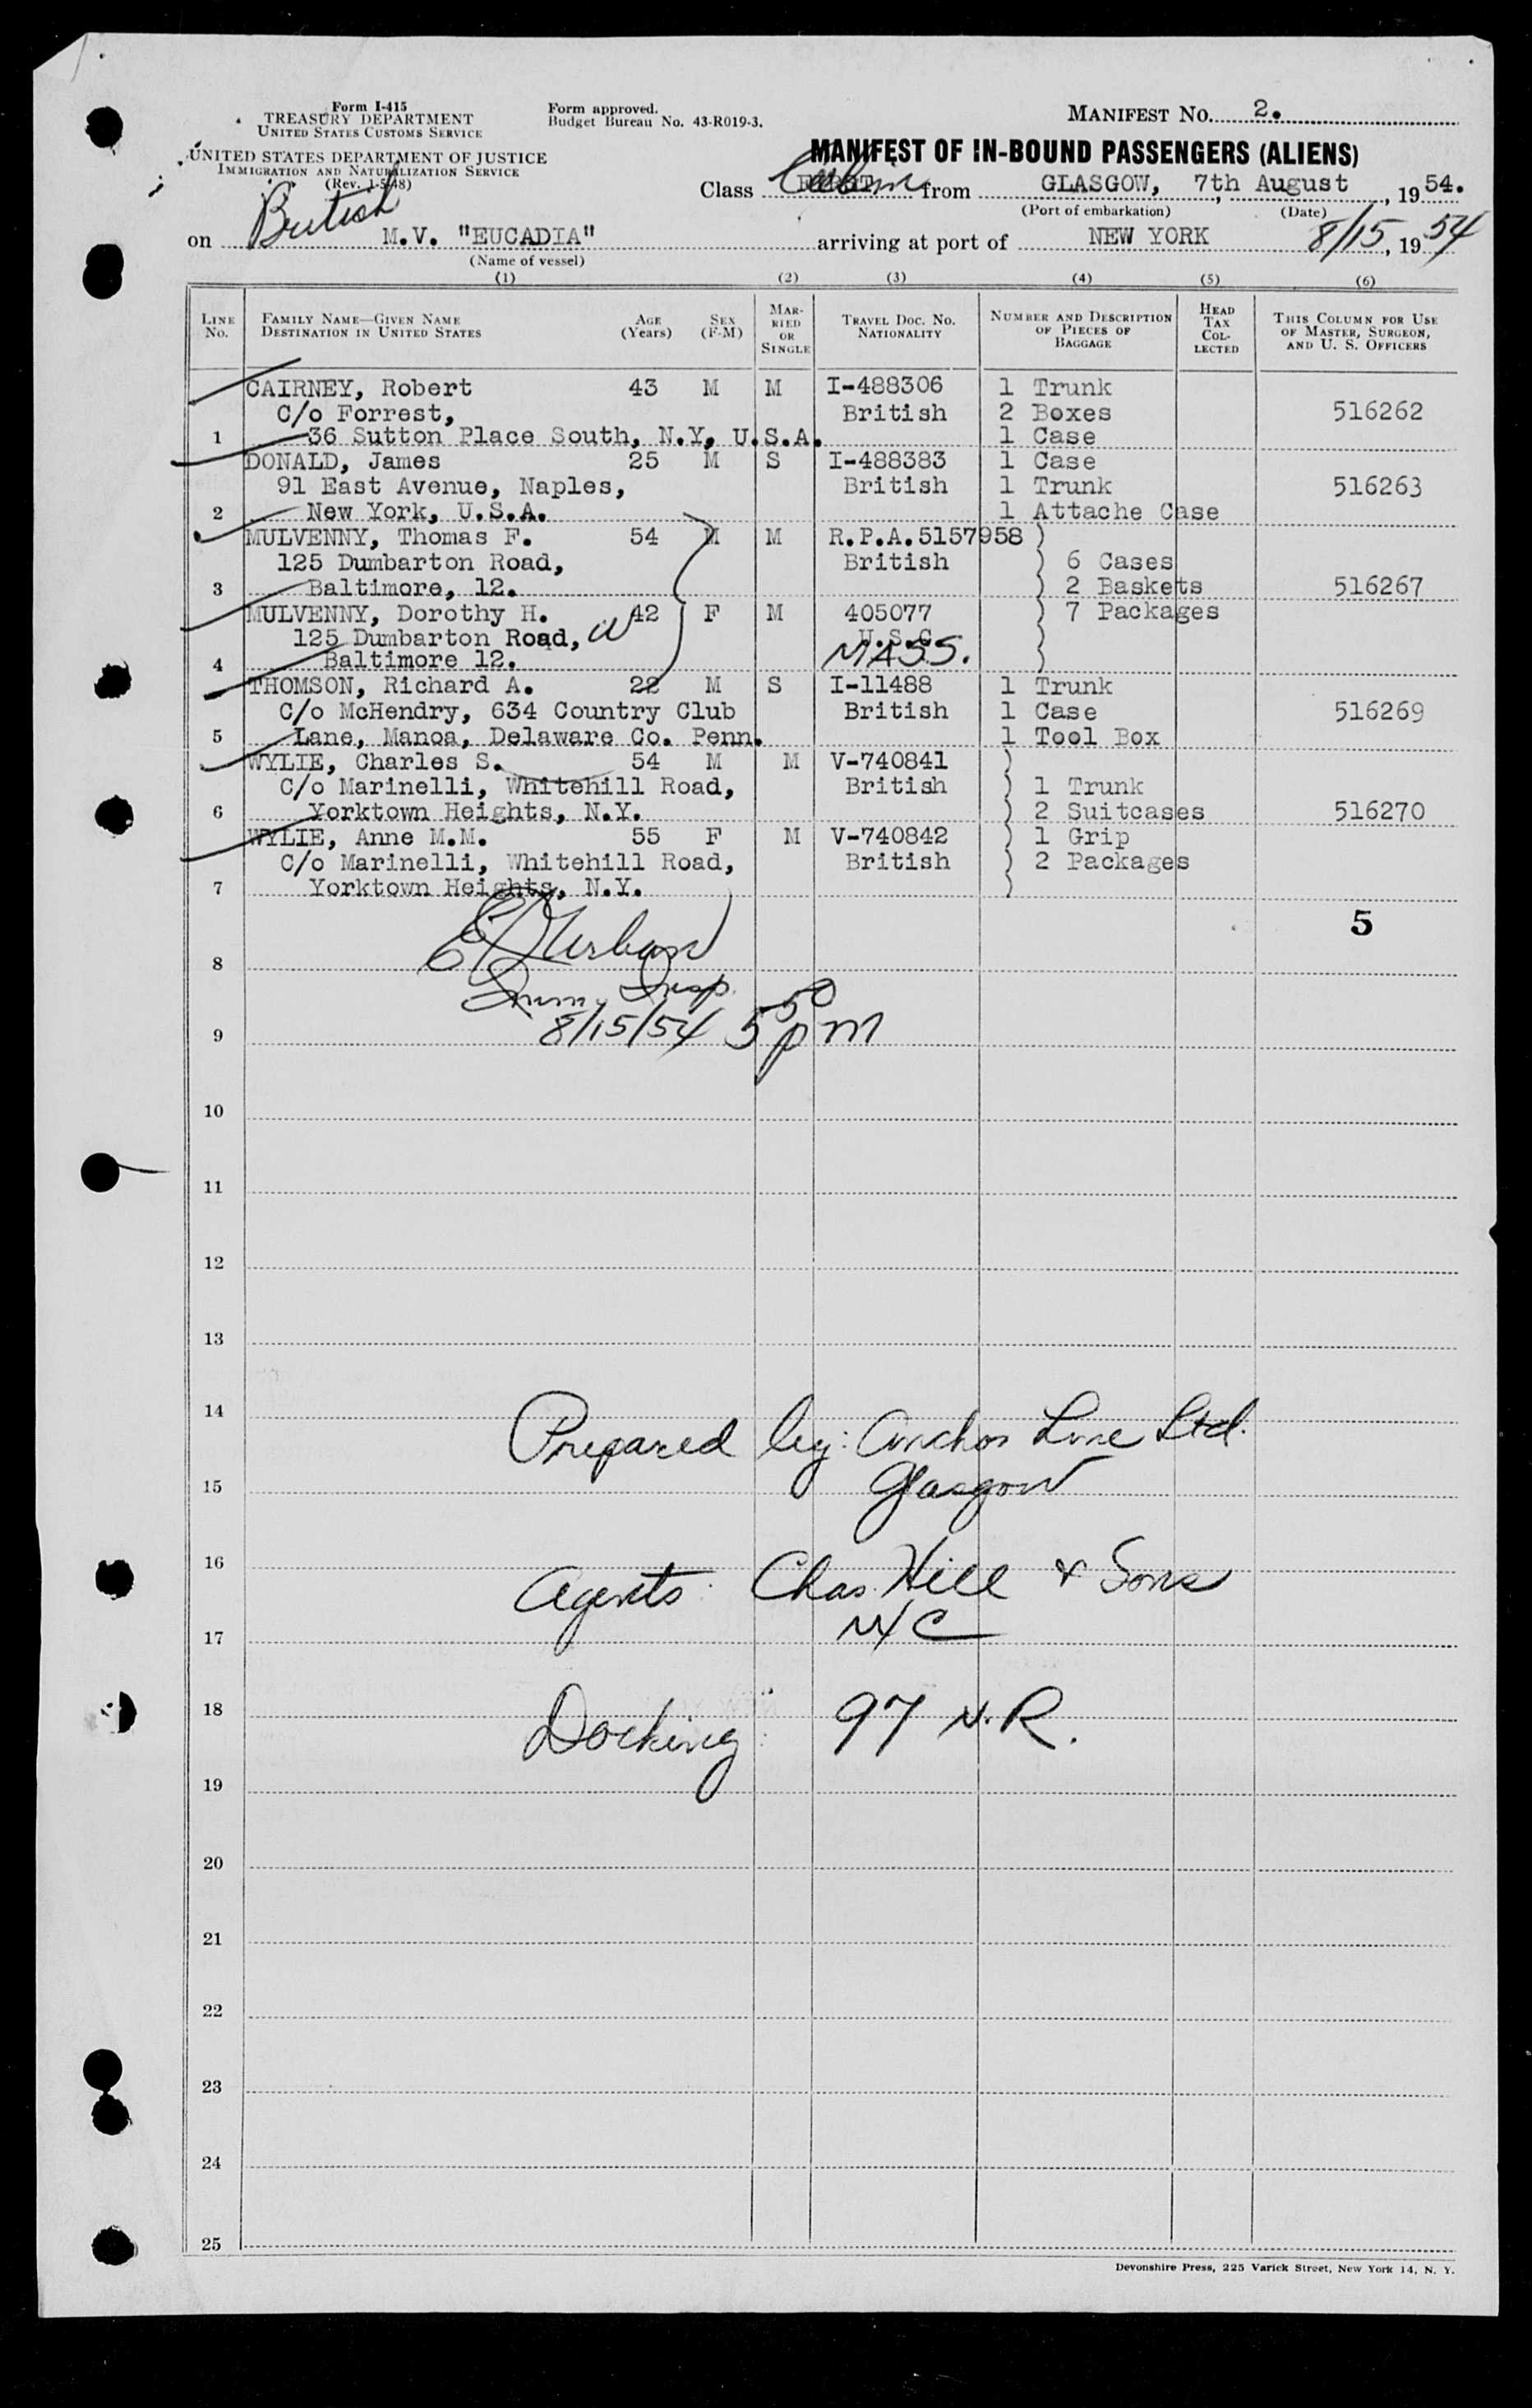 Form I-415
TREASURY DEPARTMENT
UNITED STATES CUSTOMS SERVICE
UNITED STATES DEPARTMENT OF JUSTICE
IMMIGRATION AND NATURALIZATION SERVICE
(Rev. 1-5-48)
Form approved.
Budget Bureau No. 43-R019-3.
MANIFEST No. 2.
MANIFEST OF IN-BOUND PASSENGERS (ALIENS)
Class FIRST Cabin from GLASGOW, 7th August, 1954.
(Port of embarkation) (Date)
British
on M.V. "EUCADIA" arriving at port of NEW YORK 8/15, 1954
(Name of vessel)
(1) (2) (3) (4) (5) (6)
LINE No. FAMILY NAME—GIVEN NAME DESTINATION IN UNITED STATES AGE (Years) SEX (F-M) MARRIED OR SINGLE TRAVEL DOC. NO. NATIONALITY NUMBER AND DESCRIPTION OF PIECES OF BAGGAGE HEAD TAX COLLECTED THIS COLUMN FOR USE OF MASTER, SURGEON, AND U. S. OFFICERS
CAIRNEY, Robert 43 M M I-488306 1 Trunk
C/o Forrest, British 2 Boxes 516262
1 36 Sutton Place South, N.Y, U.S.A. 1 Case
DONALD, James 25 M S I-488383 1 Case
91 East Avenue, Naples, British 1 Trunk 516263
2 New York, U.S.A. 1 Attache Case
MULVENNY, Thomas F. 54 M M R.P.A.5157958 )
125 Dumbarton Road, British ) 6 Cases
3 Baltimore, 12. ) 2 Baskets 516267
MULVENNY, Dorothy H. 42 F M 405077 ) 7 Packages
125 Dumbarton Road, U.S.C. )
4 Baltimore 12. MASS. )
THOMSON, Richard A. 22 M S I-11488 1 Trunk
C/o McHendry, 634 Country Club British 1 Case 516269
5 Lane, Manoa, Delaware Co. Penn. 1 Tool Box
WYLIE, Charles S. 54 M M V-740841 )
C/o Marinelli, Whitehill Road, British ) 1 Trunk
6 Yorktown Heights, N.Y. ) 2 Suitcases 516270
WYLIE, Anne M.M. 55 F M V-740842 ) 1 Grip
C/o Marinelli, Whitehill Road, British ) 2 Packages
7 Yorktown Heights, N.Y. )
5
8
Imm. Insp.
9 8/15/54 5 50 pm
10
11
12
13
14
Prepared by: Anchor Line Ltd.
15 Glasgow
16
Agents: Chas. Hill & Sons
17 NYC
18
Docking: 97 N.R.
19
20
21
22
23
24
25
Devonshire Press, 225 Varick Street, New York 14, N. Y.